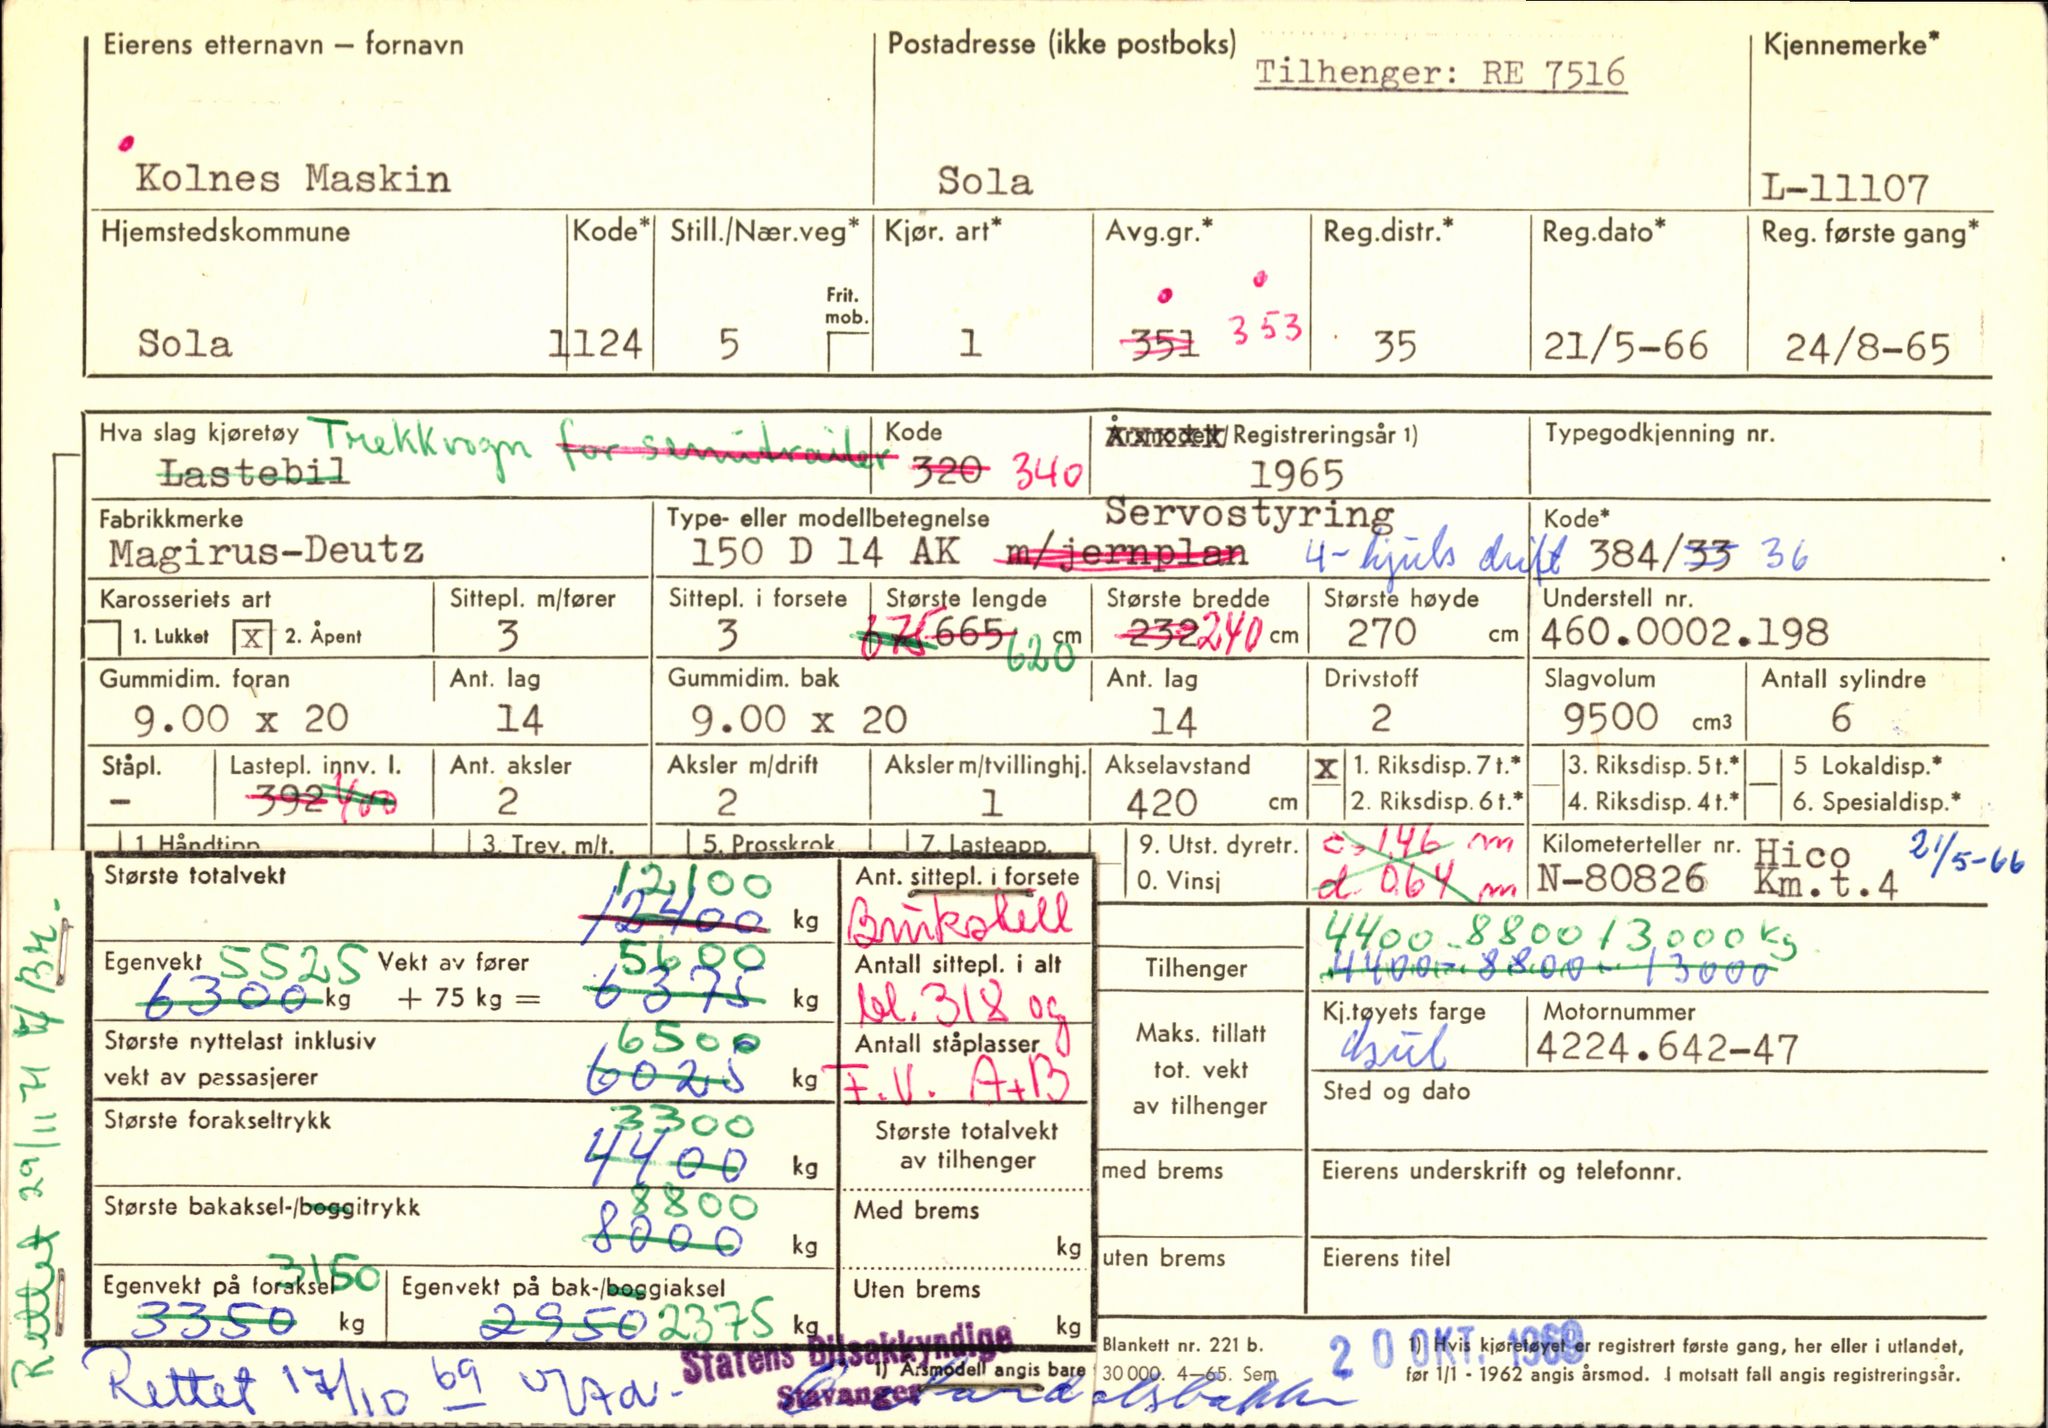 Eierens etternavn – fornavn
Postadresse (ikke postboks)
Tilhenger: RE 7516
Kjennemerke*
Kolnes Maskin
Sola
L-11107
Hjemstedskommune
Kode*
Still./Nær.veg*
Kjør. art*
Avg.gr.*
Reg.distr.*
Reg.dato*
Reg. første gang*
Frit.
mob.
Sola
1124
5
1
351 353
35
21/5-66
24/8-65
Hva slag kjøretøy Trekkvogn for semitrailer
Lastebil
Kode
320 340
Årsmodell/Registreringsår 1)
1965
Typegodkjenning nr.
Fabrikkmerke
Magirus-Deutz
Type- eller modellbetegnelse
Servostyring
150 D 14 AK m/jernplan 4-hjuls drift
Kode*
384/33 36
Karosseriets art
1. Lukket X 2. Åpent
Sittepl. m/fører
3
Sittepl. i forsete
3
Største lengde
675 665 cm
620
Største bredde
232 240 cm
Største høyde
270 cm
Understell nr.
460.0002.198
Gummidim. foran
9.00 x 20
Ant. lag
14
Gummidim. bak
9.00 x 20
Ant. lag
14
Drivstoff
2
Slagvolum
9500 cm3
Antall sylindre
6
Ståpl.
–
Lastepl. innv. l.
392 400
Ant. aksler
2
Aksler m/drift
2
Aksler m/tvillinghj.
1
Akselavstand
420 cm
X 1. Riksdisp. 7 t.*
2. Riksdisp. 6 t.*
3. Riksdisp. 5 t.*
4. Riksdisp. 4 t.*
5 Lokaldisp.*
6. Spesialdisp.*
1. Håndtipp
3. Trev. m/t.
5. Prosskrok
7. Lasteapp.
9. Utst. dyretr.
0. Vinsj
c. 1.46 m
d. 0.64 m
Kilometerteller nr. Hico
N-80826 Km.t.4
21/5-66
Største totalvekt
12100
12400 kg
Ant. sittepl. i forsete
Brukstell
Egenvekt 5525
6300 kg
Vekt av fører
+ 75 kg =
5600
6375 kg
Antall sittepl. i alt
bl. 318 og
Største nyttelast inklusiv
vekt av passasjerer
6500
6025 kg
Antall ståplasser
F.V. A+B
Største forakseltrykk
3300
4400 kg
Største totalvekt
av tilhenger
Største bakaksel-/boggitrykk
8800
8000 kg
Med brems
kg
Egenvekt på foraksel
3150
3350 kg
Egenvekt på bak-/boggiaksel
2950 2375 kg
Uten brems
kg
Tilhenger
4400-8800 13000 kg
4400-8800-13000
Maks. tillatt
tot. vekt
av tilhenger
med brems
uten brems
Kj.tøyets farge
Gul
Motornummer
4224.642-47
Sted og dato
Eierens underskrift og telefonnr.
Eierens titel
Rettet 29/11 71
Rettet 17/10 69
Statens Bilsakkyndige
Stavanger
1) Årsmodell angis bare
Blankett nr. 221 b.
30 000. 4–65. Sem
20 OKT. 1969
1) Hvis kjøretøyet er registrert første gang, her eller i utlandet,
før 1/1 - 1962 angis årsmod. I motsatt fall angis registreringsår.